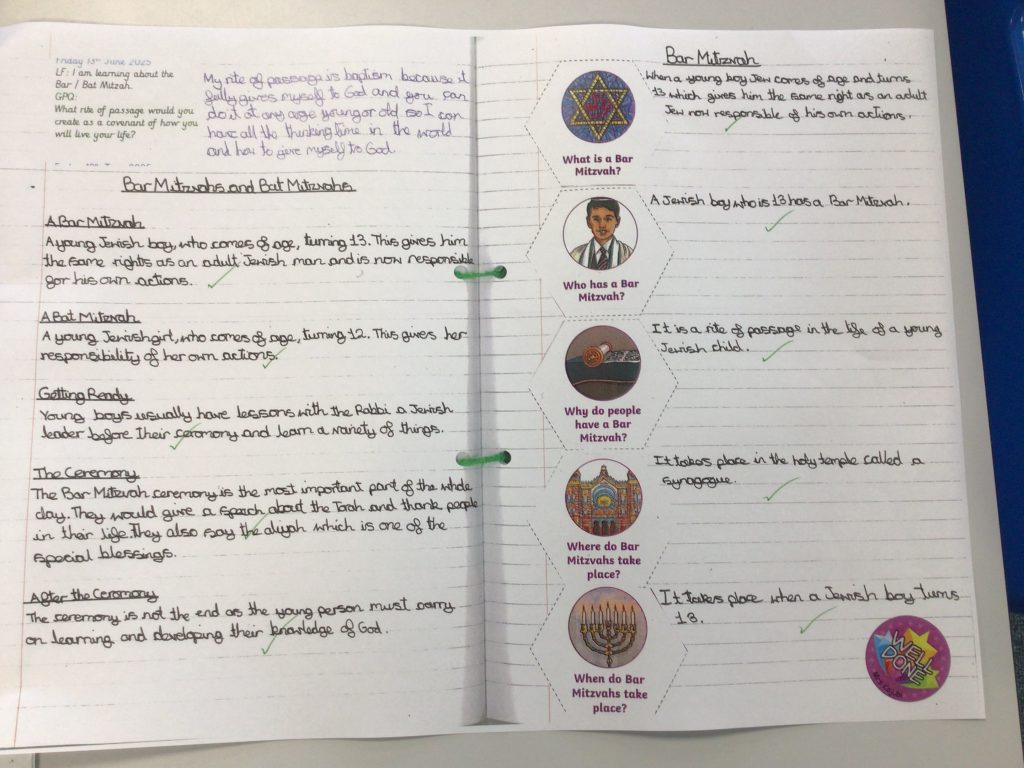 Friday 13th June 2025
LF: I am learning about the
Bar / Bat Mitzah.
GPQ:
What rite of passage would you
create as a covenant of how you
will live your life?
My rite of passage is baptism because it
fully gives myself to God and you can
do it at any age young or old so I can
have all the thinking time in the world
and how to give myself to God.
Bar Mitzvahs and Bat Mitzvahs
A Bar Mitzvah
A young Jewish boy, who comes of age, turning 13. This gives him
the same rights as an adult Jewish man and is now responsible
for his own actions.
A Bat Mitzvah
A young Jewish girl, who comes of age, turning 12. This gives her
responsibility of her own actions.
Getting Ready
Young boys usually have lessons with the Rabbi a Jewish
leader before their ceromony and learn a variety of things.
The Ceremony
The Bar Mitzvah ceremony is the most important part of the whole
day. They would give a speach about the Torah and thank people
in their life. They also say the aliyah which is one of the
special blessings.
After the Ceremony
The ceremony is not the end as the young person must carry
on learning and developing their knowledge of God.
Bar Mitzvah
What is a Bar
Mitzvah?
When a young boy Jew comes of age and turns
13 which gives him the same right as an adult
Jew now responsible of his own actions.
Who has a Bar
Mitzvah?
A Jewish boy who is 13 has a Bar Mitzvah.
Why do people
have a Bar
Mitzvah?
It is a rite of passage in the life of a young
Jewish child.
Where do Bar
Mitzvahs take
place?
It takes place in the holy temple called a
synagogue.
When do Bar
Mitzvahs take
place?
It takes place when a Jewish boy turns
13.
WELL
DONE